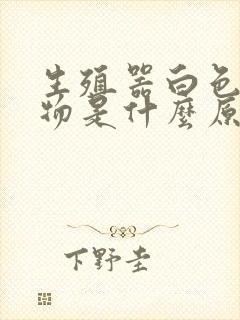 生殖器白色
物是什麼原
下野圭